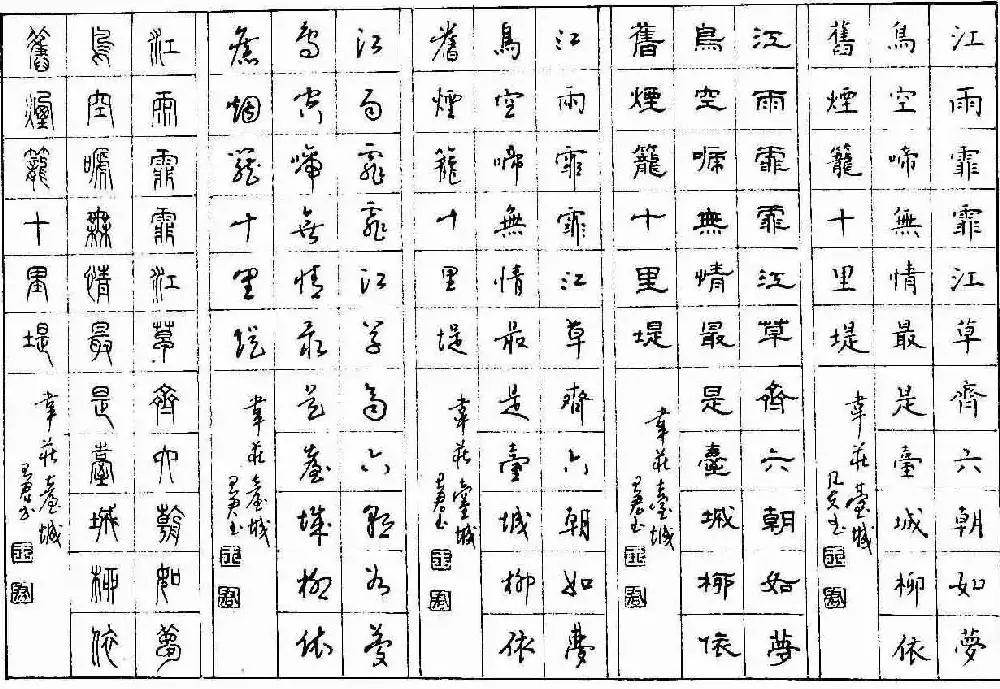 江雨霏霏江草齊六朝如夢
鳥空啼無情最是臺城柳依
舊煙籠十里堤
韋莊臺城
江雨霏霏江草齊六朝如夢
鳥空啼無情最是臺城柳依
舊煙籠十里堤
韋莊臺城
江雨霏霏江草齊六朝如夢
鳥空啼無情最是臺城柳依
舊煙籠十里堤
韋莊臺城
江雨霏霏江草齊六朝如夢
鳥空啼無情最是臺城柳依
舊烟籠十里堤
韋莊臺城
江雨霏霏江草齊六朝如夢
鳥空啼無情最是臺城柳依
舊煙籠十里堤
韋莊臺城